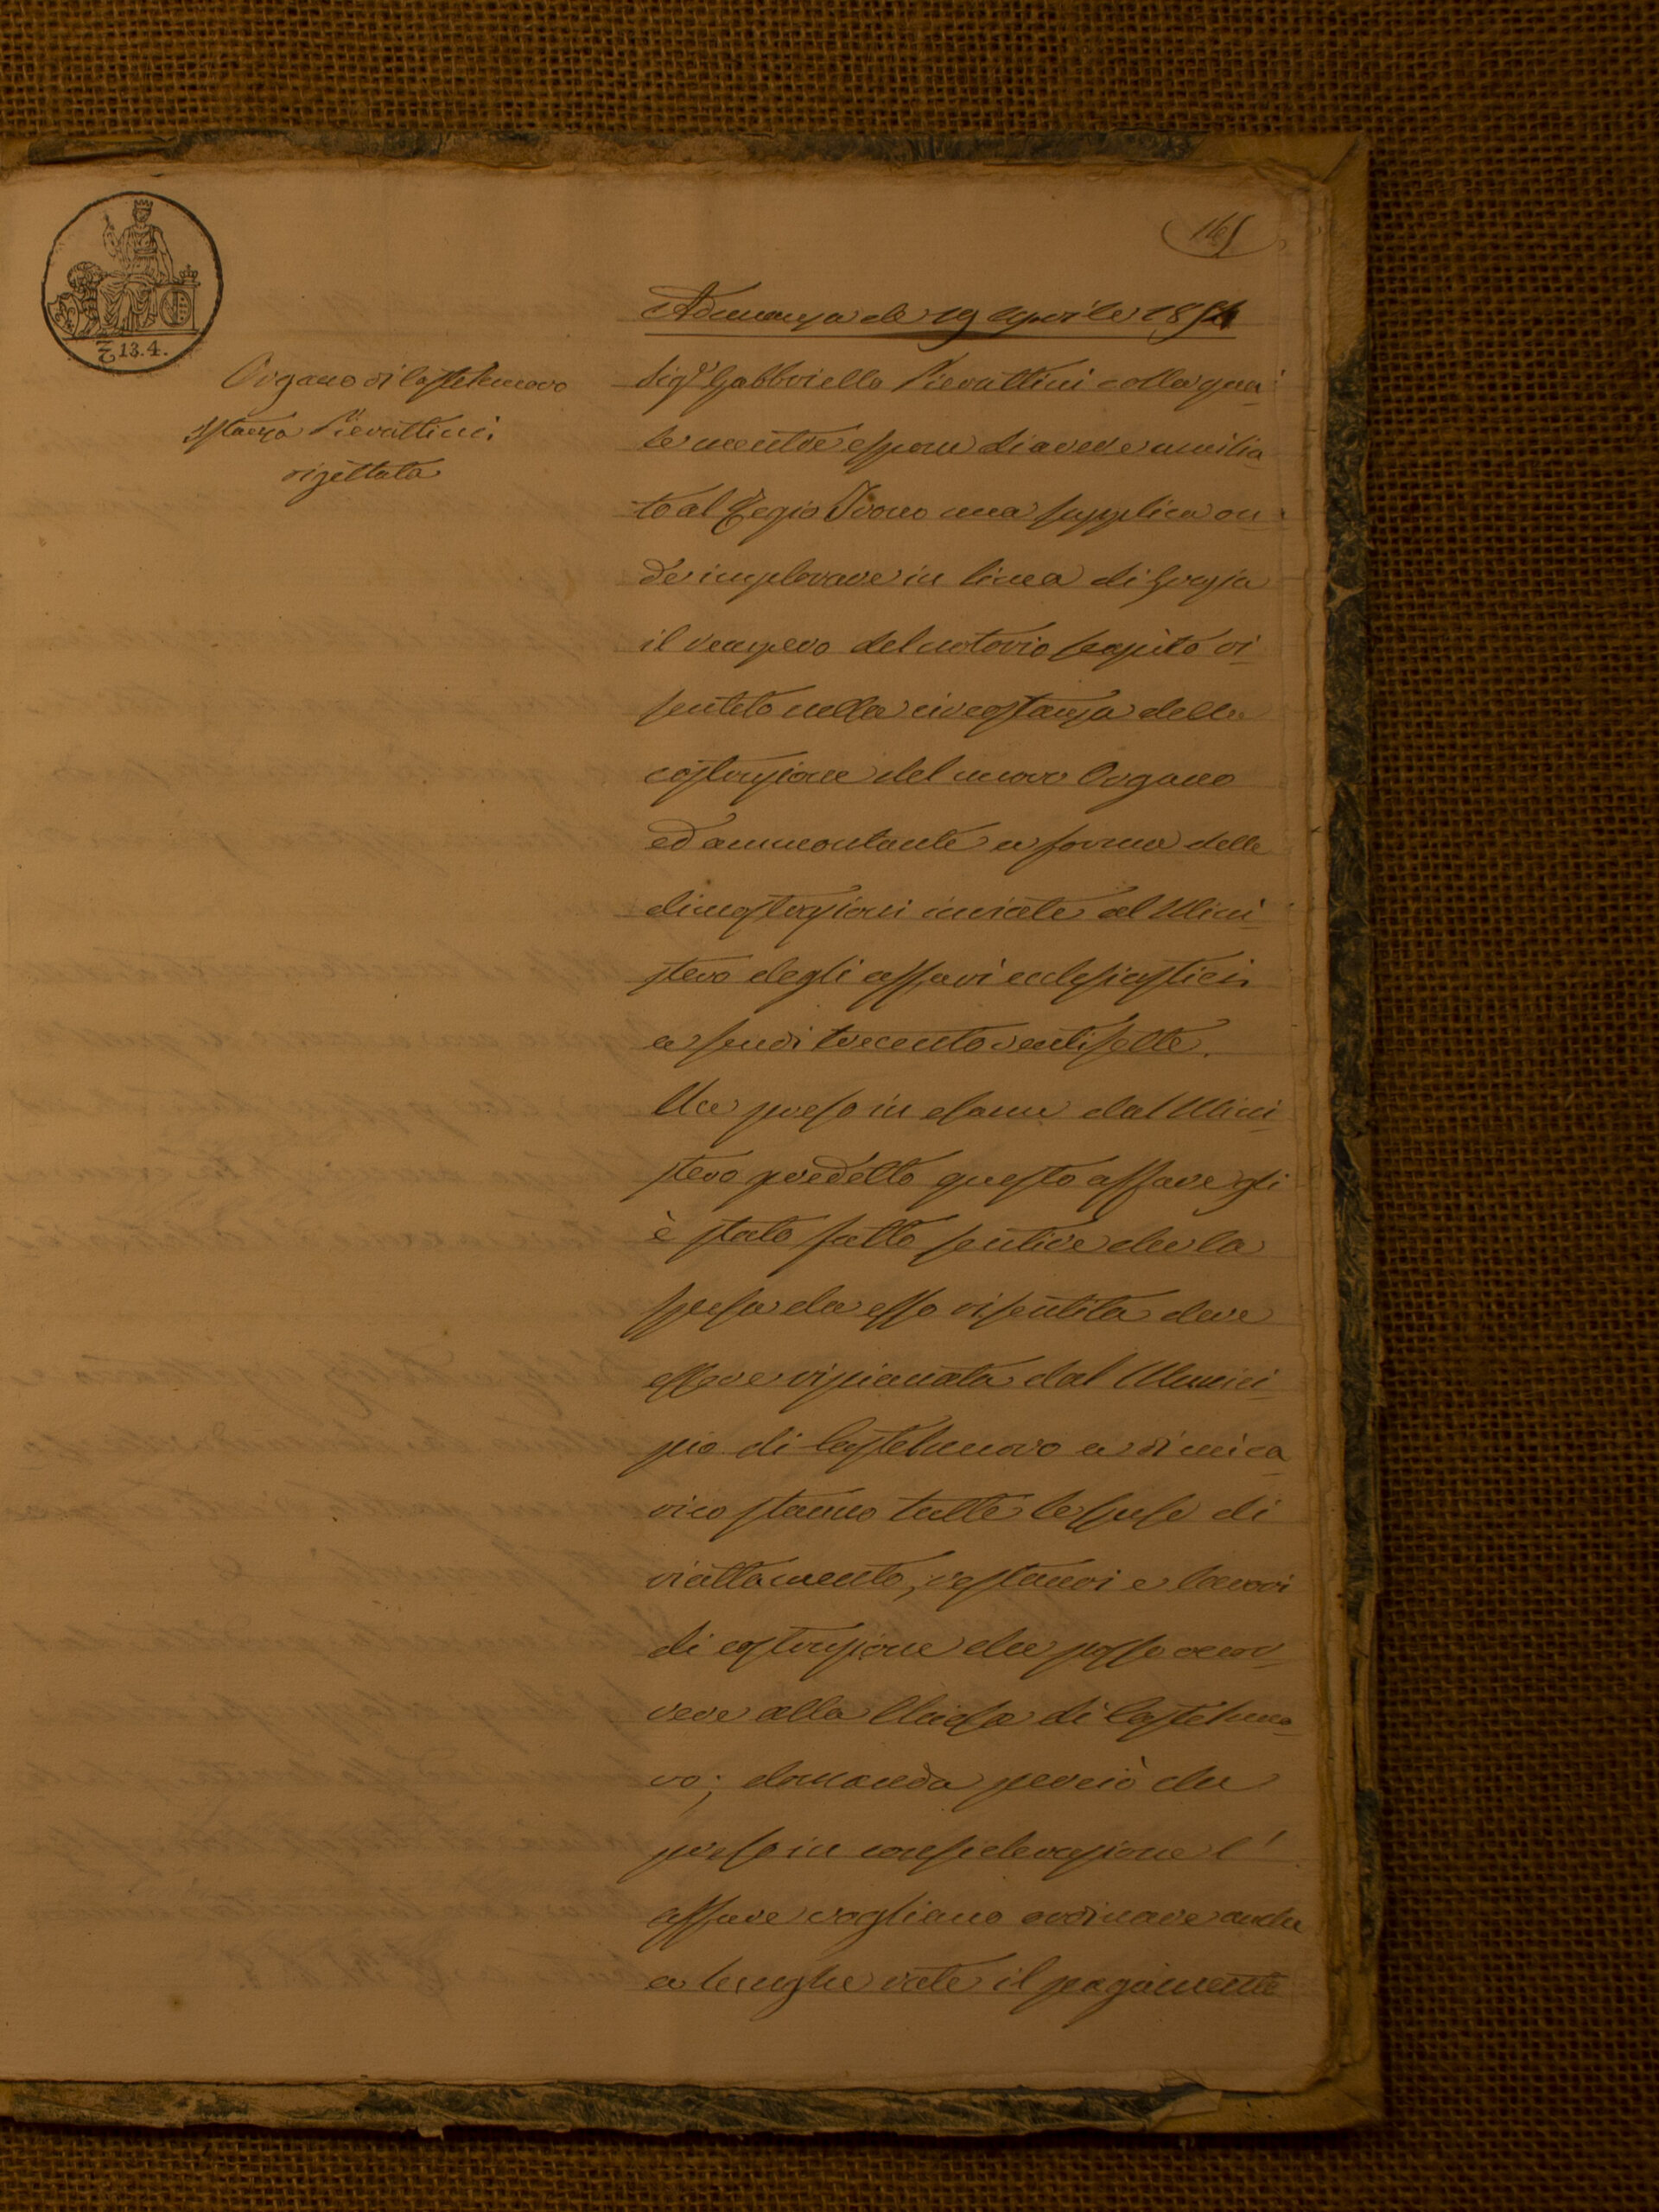 165
7 13.4.
Adunanza de 19 Aprile 1854
Organo di Castelnuovo
Istanza Pierattini
rigettata
Sig.r Gabbriello Pierattini colla qua
le mentre espone di avere umilia
to al Regio Trono una supplica on
de implorare in linea di Grazia
il rimpero del notorio scapito ri
sentito nella circostanza della
costruzione del nuovo Organo
ed ammontante a forma delle
dimostrazioni inviate al Mini
stero degli affari ecclesiastici
a scudi trecentoventisette.
Ma preso in esame dal Mini
stero predetto questo affare gli
è stato fatto sentire che la
spesa da esso risentita deve
essere ripianata dal Munici
pio di Castelnuovo a di cui ca
rico stanno tutte le spese di
riattamento, restauri e lavori
di costruzione che possa occor
rere alla Chiesa di Castelnuo
vo; domanda perciò che
preso in considerazione l'
affare vogliano ordinare anche
a lunghe rate il pagamento